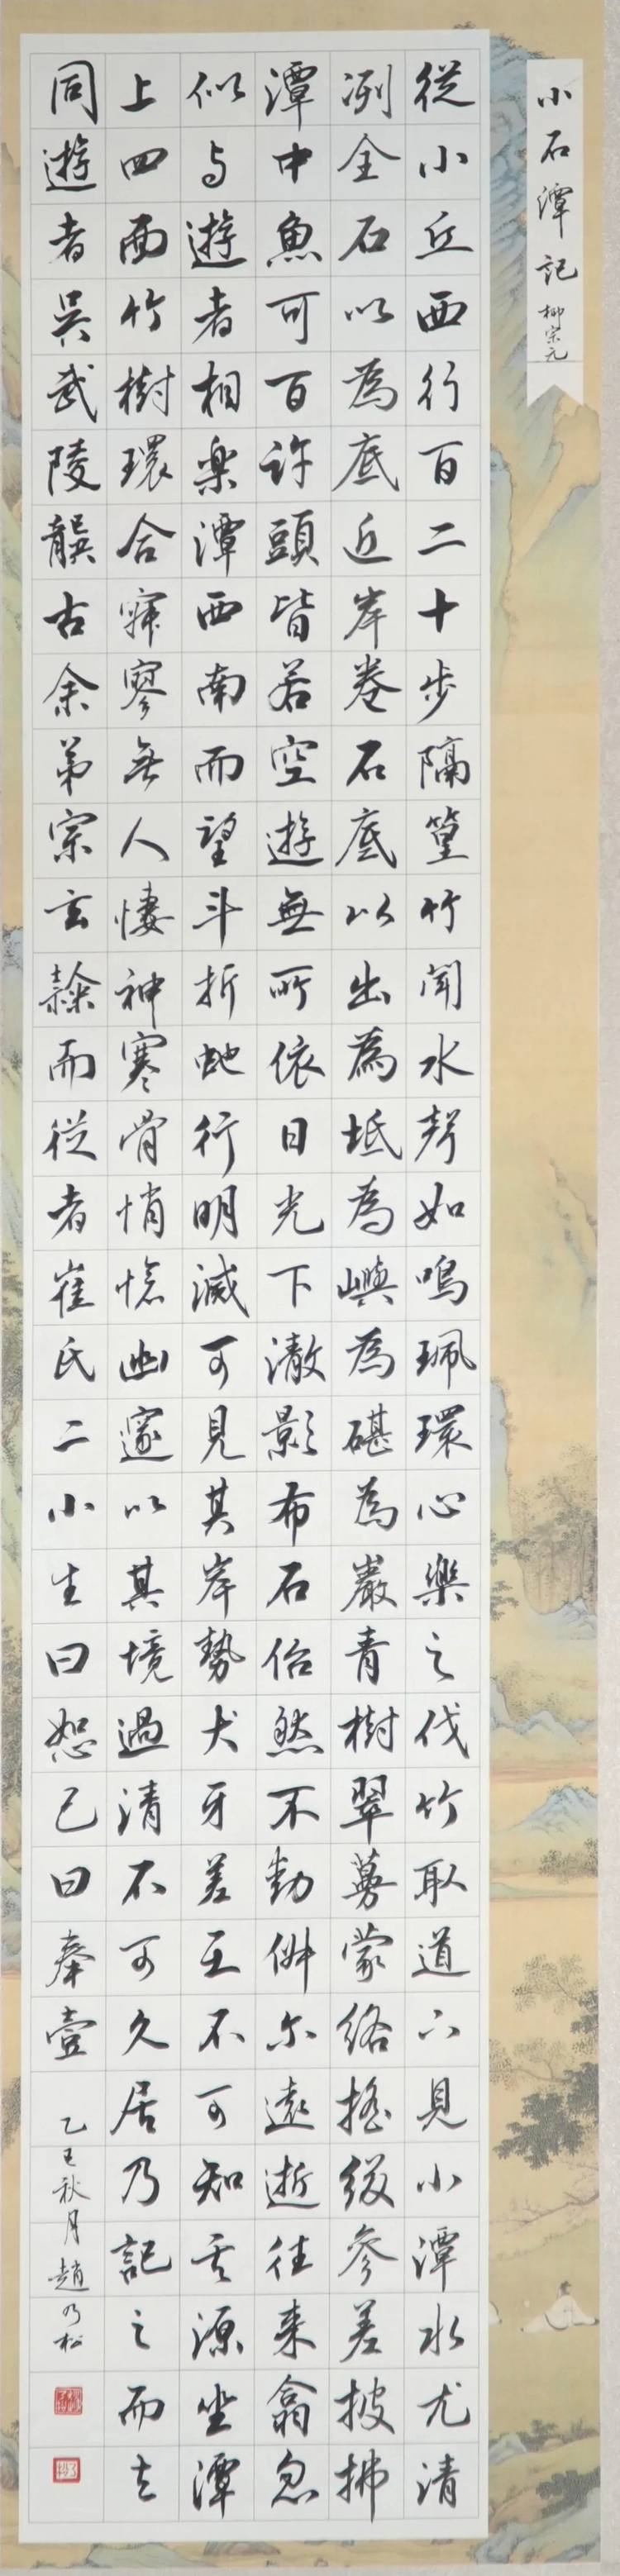 小石潭記 柳宗元
從小丘西行百二十步隔篁竹聞水聲如鳴珮環心樂之伐竹取道下見小潭水尤清
冽全石以為底近岸卷石底以出為坻為嶼為碪為巖青樹翠蔓蒙絡搖綴參差披拂
潭中魚可百許頭皆若空遊無所依日光下澈影布石佁然不動俶尔遠逝往来翕忽
似与遊者相樂潭西南而望斗折虵行明滅可見其岸勢犬牙差互不可知其源坐潭
上四面竹樹環合寂寥無人悽神寒骨悄愴幽邃以其境過清不可久居乃記之而去
同遊者吳武陵龔古余弟宗玄隸而從者崔氏二小生曰恕己曰奉壹
乙巳秋月趙乃松